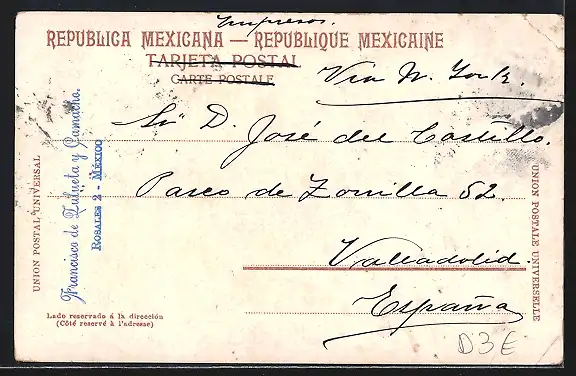 Impresos.
REPUBLICA MEXICANA — REPUBLIQUE MEXICAINE
TARJETA POSTAL
CARTE POSTALE
Via N. York.
Sr. D. José del Castillo.
Paseo de Zorrilla 52.
Valladolid.
España
UNION POSTAL UNIVERSAL
Francisco de Zulueta y Camacho.
ROSALES 2 - MÉXICO
UNION POSTALE UNIVERSELLE
Lado reservado á la dirección
(Côté reservé à l'adresse)
D3E